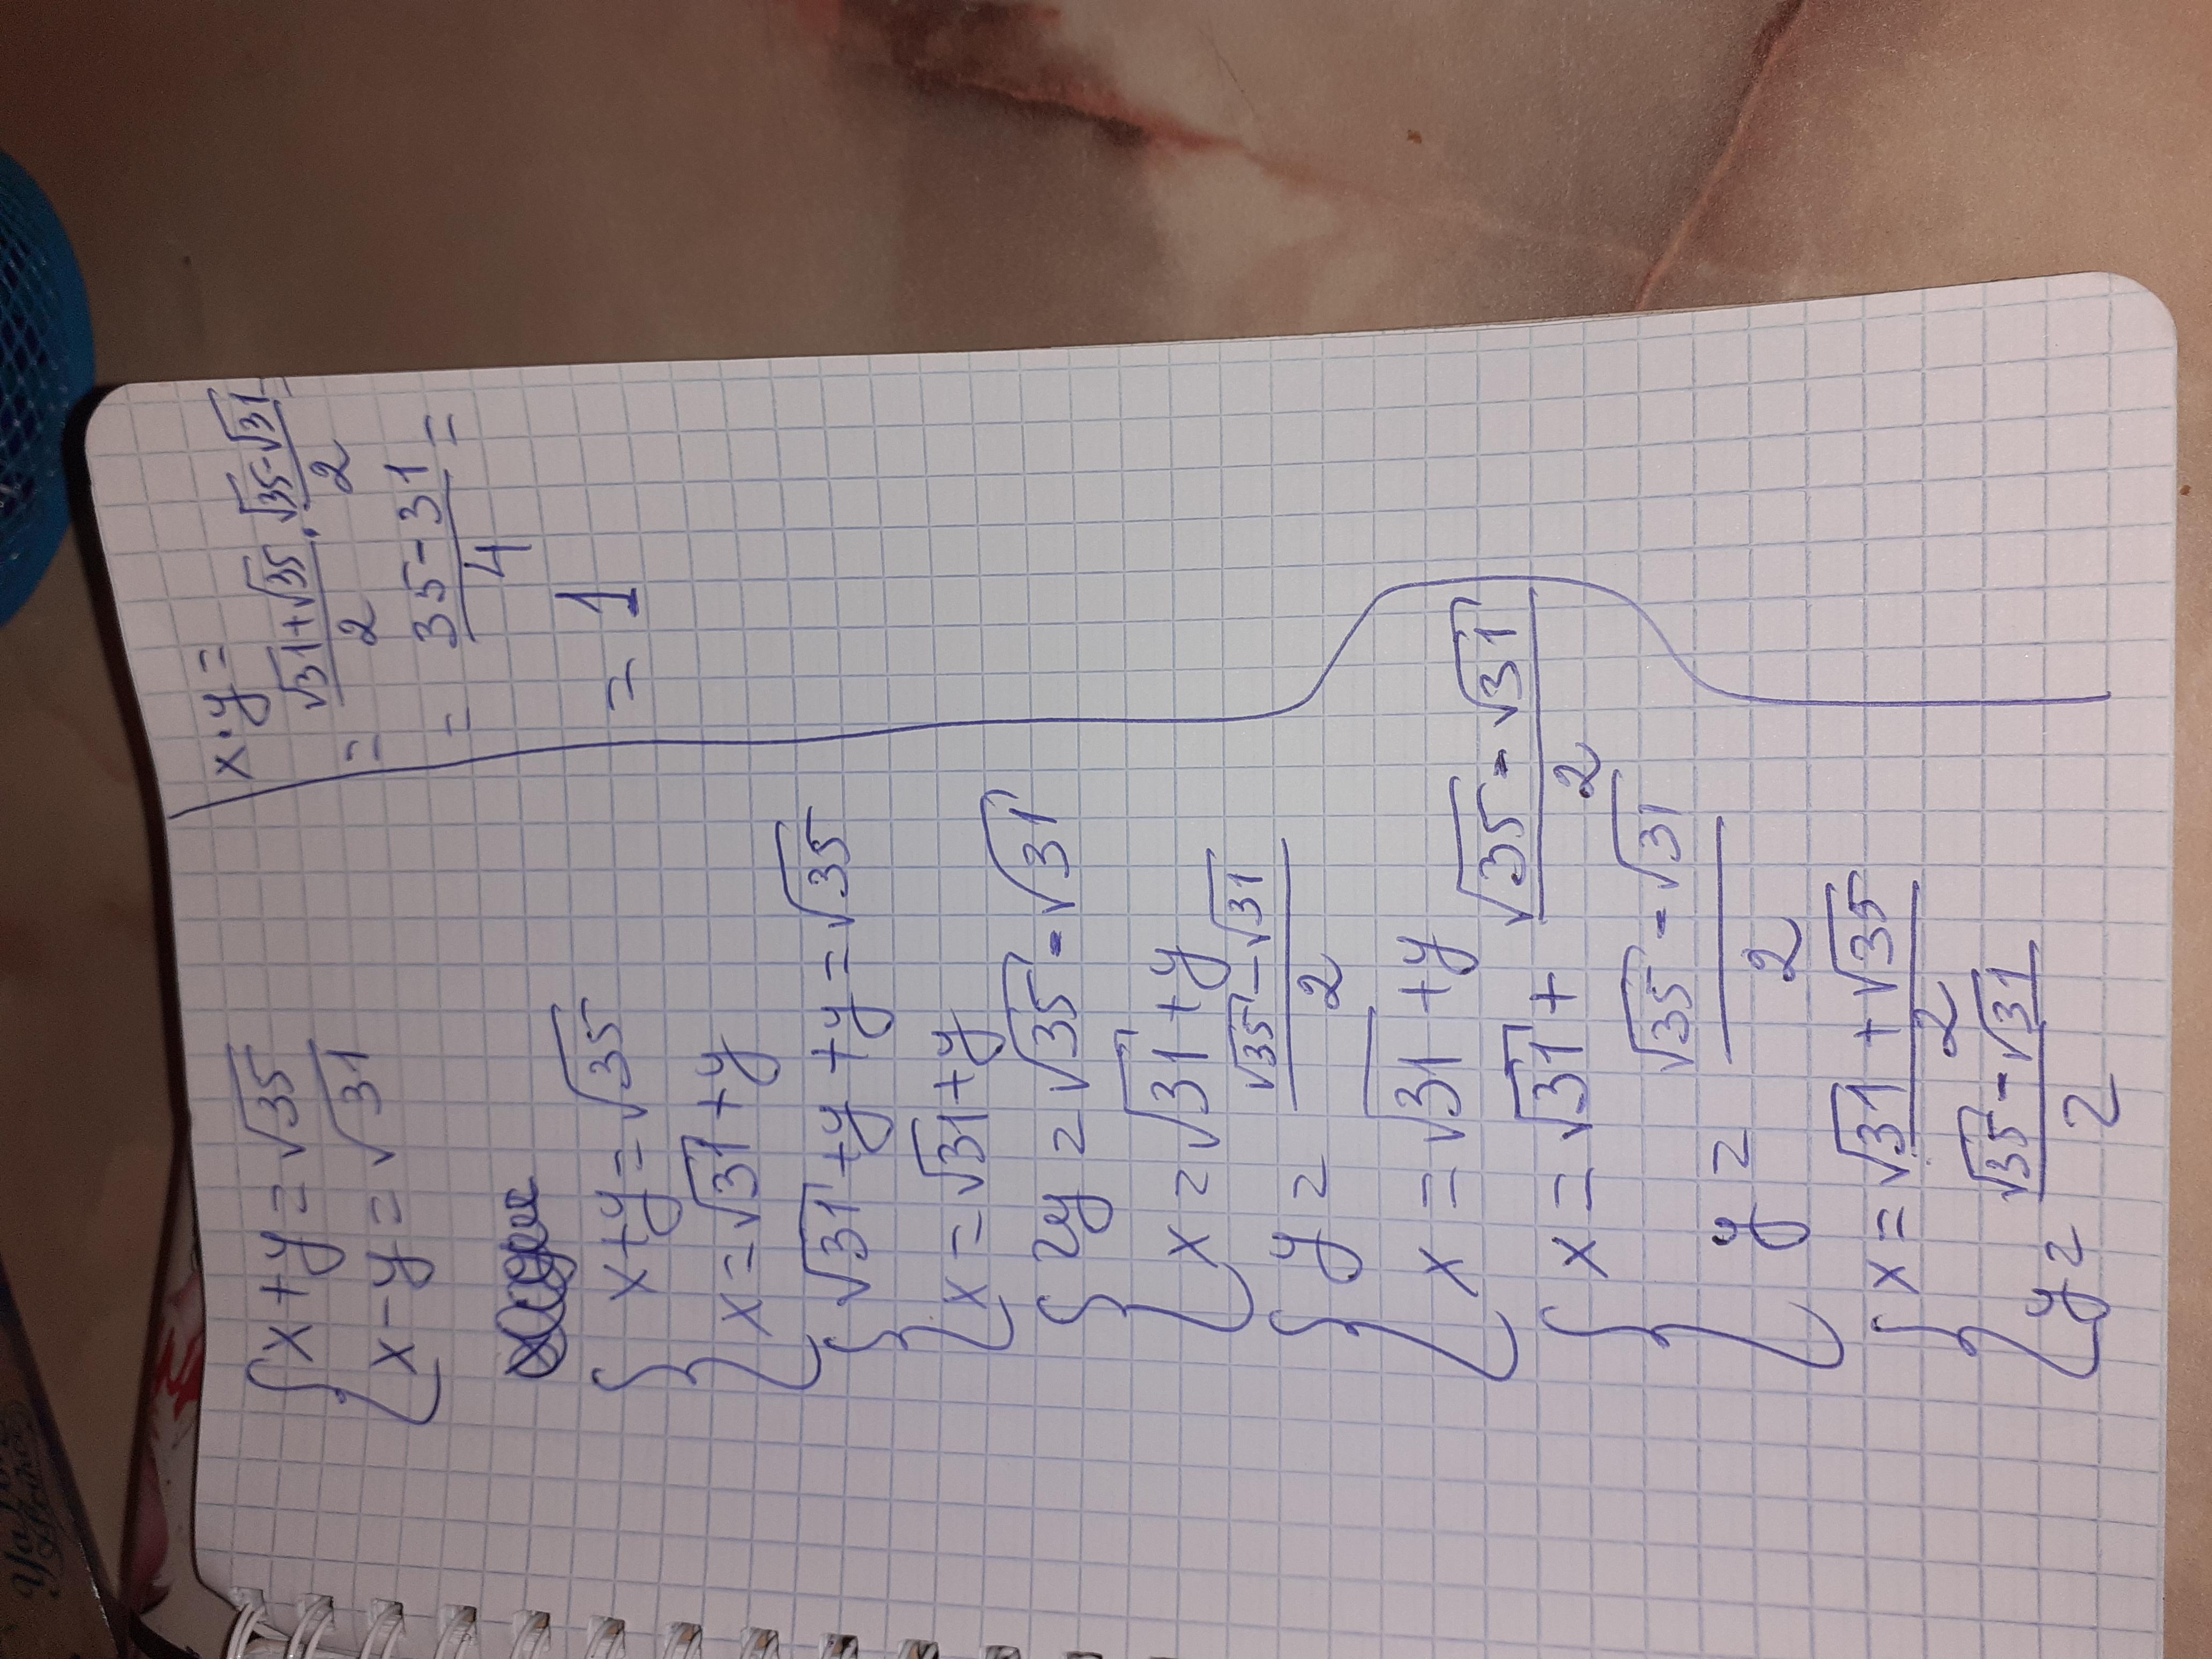 { x+y=√35
x-y=√31
{ x+y=√35
x=√31+y
{ √31+y+y=√35
x=√31+y
{ 2y=√35-√31
x=√31+y
{ y=(√35-√31)/2
x=√31+y
{ x=√31+(√35-√31)/2
y=(√35-√31)/2
{ x=(√31+√35)/2
y=(√35-√31)/2
x·y=
=(√31+√35)/2·(√35-√31)/2
=(35-31)/4=
=1